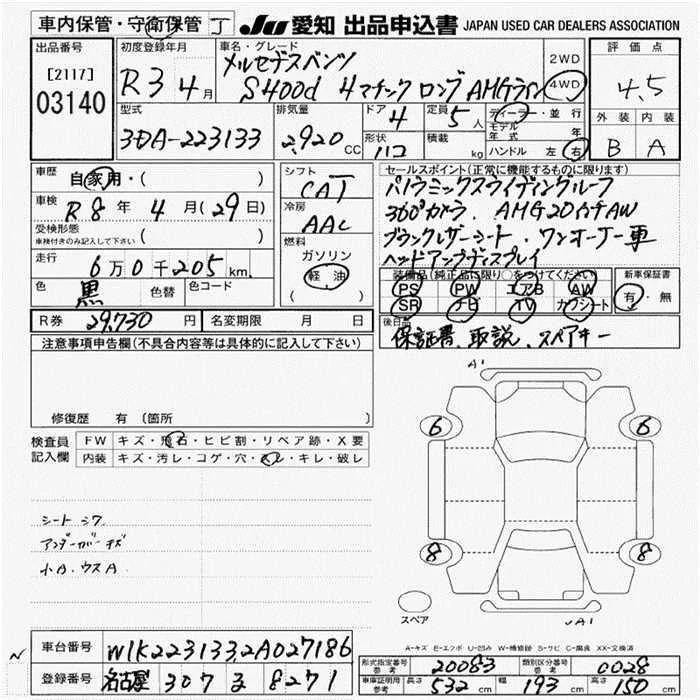 車内保管・守衛保管 J JU 愛知 出品申込書 JAPAN USED CAR DEALERS ASSOCIATION
出品番号
[2117]
03140
初度登録年月
R3 4月
車名・グレード
メルセデスベンツ
S400d 4マチック ロング AMGライン
2WD
4WD
評価点
4.5
外装 内装
B A
型式
3DA-223133
排気量
2,920CC
ドア
4
形状
ハコ
定員
5人
積載
kg
ディーラー・並行
モデル年式 年
ハンドル 左 右
車歴 自家用・( )
車検 R8年 4月(29日)
受検形態
車検付きのみ記入して下さい ( )
走行 6万0千205km
色 黒 色替 色コード
シフト
CAT
冷房
AAC
燃料
ガソリン
軽油
( )
セールスポイント(正常に機能するものに限り)
パノラミックスライディングルーフ
360°カメラ. AMG20インチAW
ブラックレザーシート・ワンオーナー車
ヘッドアップディスプレイ
装備品(純正品に限り○をつけてください)
PS PW エアB AW
SR ナビ TV カワシート
新車保証書
有・無
R券 29,730円 名変期限 月 日
後日品
保証書、取説、スペアキー
注意事項申告欄(不具合内容等は具体的に記入して下さい)
修復歴 有 (箇所 )
検査員記入欄
FW キズ・飛石・ヒビ割・リペア跡・X要
内装 キズ・汚レ・コゲ・穴・スレ・キレ・破レ
シート シワ
アンダーカバー キズ
小A.ウスA
A1
6 6
8 8
スペア
A-キズ E-エクボ U-凹み W-補修跡 S-サビ C-腐食 XX-交換済
車台番号 W1K2231332A027186
登録番号 名古屋 307 る 8271
型式指定番号 参考 20083 類別区分番号 参考 0028
車庫証明用 参考 長さ 532cm 幅 193cm 高さ 150cm